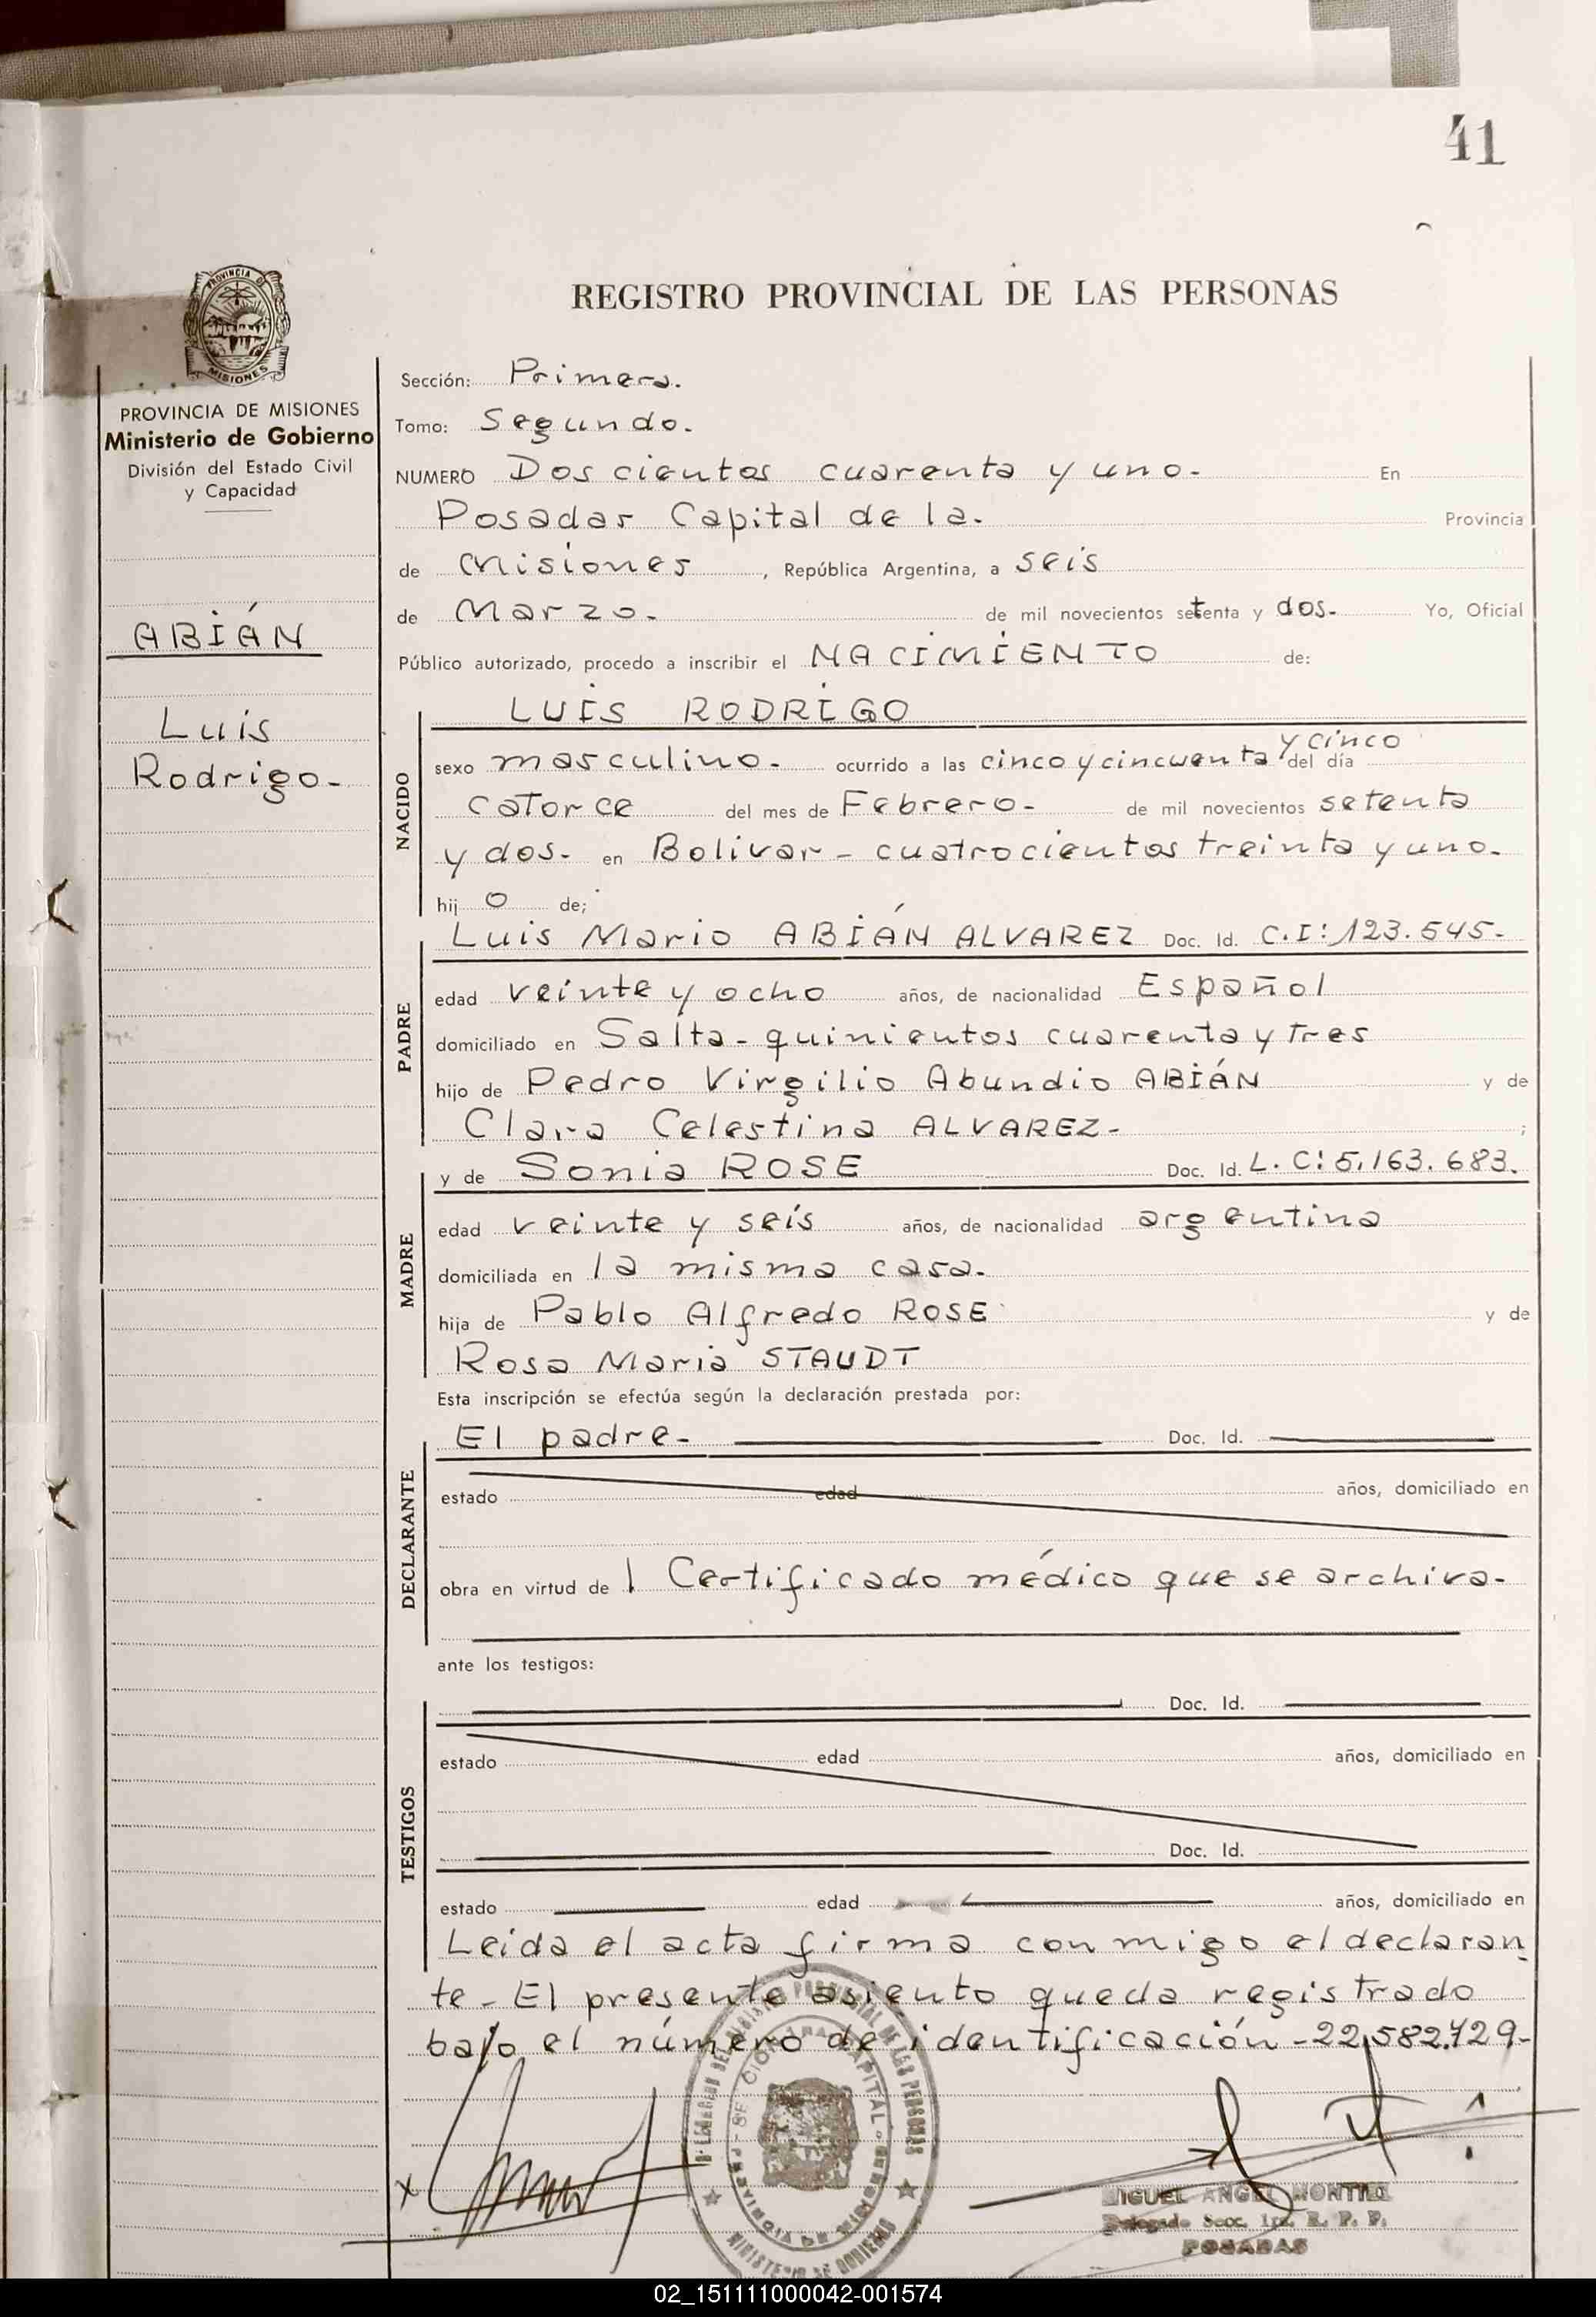 41
PROVINCIA DE
MISIONES
REGISTRO PROVINCIAL DE LAS PERSONAS
PROVINCIA DE MISIONES
Ministerio de Gobierno
División del Estado Civil
y Capacidad
ABIÁN
Luis
Rodrigo-
Sección: Primera.
Tomo: Segundo.
NUMERO Doscientos cuarenta y uno- En
Posadas Capital de la. Provincia
de Misiones, República Argentina, a seis
de Marzo- de mil novecientos setenta y dos- Yo, Oficial
Público autorizado, procedo a inscribir el NACIMIENTO de:
NACIDO
LUIS RODRIGO
y cinco
sexo masculino- ocurrido a las cinco y cincuenta del día
catorce del mes de Febrero- de mil novecientos setenta
y dos- en Bolivar - cuatrocientos treinta y uno.
hijo de;
PADRE
Luis Mario ABIÁN ALVAREZ Doc. Id. C.I: 123.545-
edad veinte y ocho años, de nacionalidad Español
domiciliado en Salta - quinientos cuarenta y tres
hijo de Pedro Virgilio Abundio ABIÁN y de
Clara Celestina ALVAREZ- ;
MADRE
y de Sonia ROSE Doc. Id. L.C: 5.163.683.
edad veinte y seis años, de nacionalidad argentina
domiciliada en la misma casa.
hija de Pablo Alfredo ROSE y de
Rosa Maria STAUDT
Esta inscripción se efectúa según la declaración prestada por:
DECLARANTE
El padre- Doc. Id.
estado edad años, domiciliado en
obra en virtud de 1 Certificado médico que se archiva-
ante los testigos:
TESTIGOS
Doc. Id.
estado edad años, domiciliado en
Doc. Id.
estado edad años, domiciliado en
Leida el acta firma conmigo el declaran
te- El presente asiento queda registrado
bajo el número de identificación -22.582.429-
MIGUEL ANGEL MONTIEL
Delegado Secc. 1ra. R. P. P.
POSADAS
02_151111000042-001574